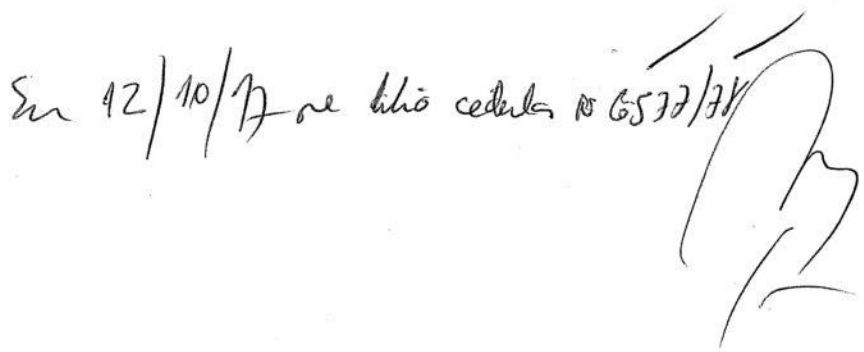 En 12/10/17 se libró cedula No 6577/78